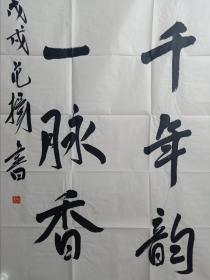 千年韵
一脉香
戊戌范扬书